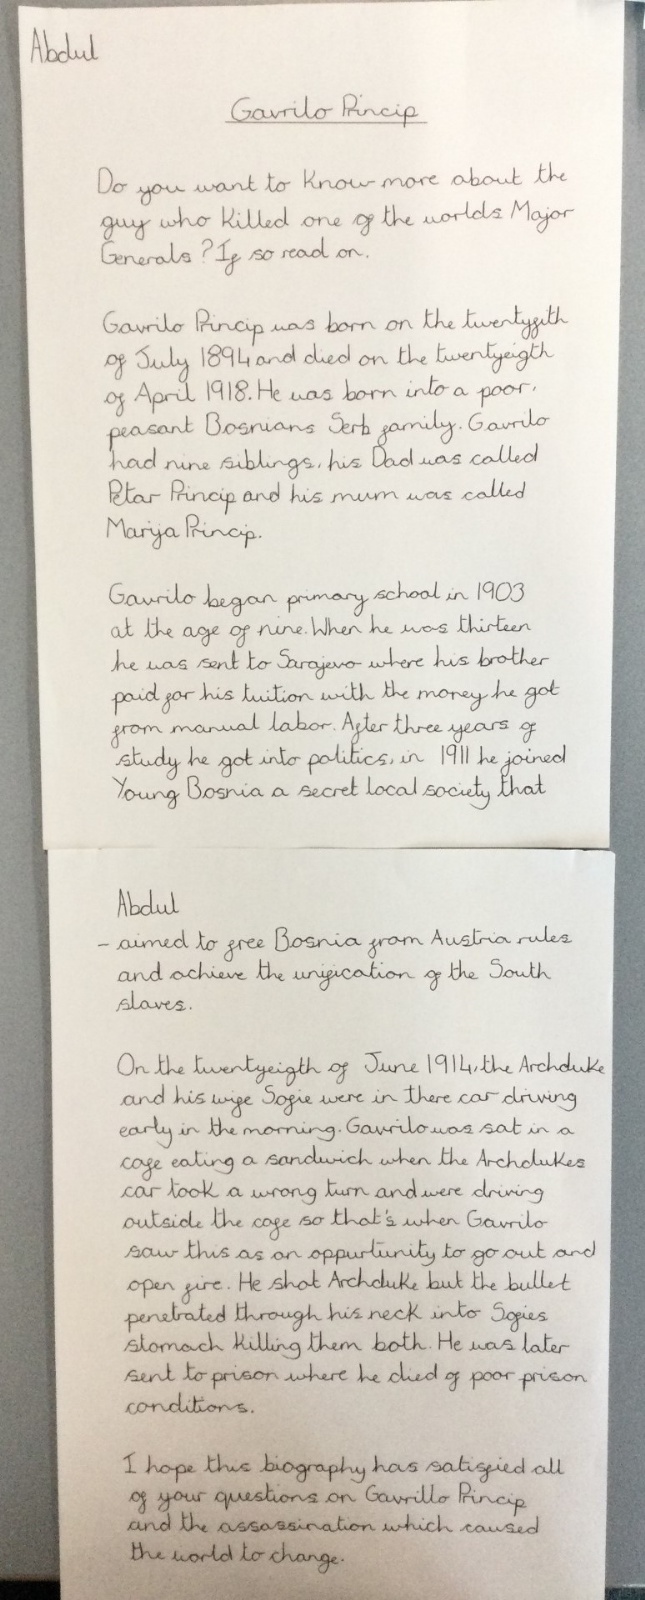 Abdul
Gavrilo Princip
Do you want to know more about the
guy who killed one of the worlds Major
Generals? If so read on.
Gavrilo Princip was born on the twentyfith
of July 1894 and died on the twentyeigth
of April 1918. He was born into a poor,
peasant Bosnians Serb family. Gavrilo
had nine siblings, his Dad was called
Petar Princip and his mum was called
Marija Princip.
Gavrilo began primary school in 1903
at the age of nine. When he was thirteen
he was sent to Sarajevo where his brother
paid for his tuition with the money he got
from manual labor. After three years of
study he got into politics, in 1911 he joined
Young Bosnia a secret local society that
Abdul
- aimed to free Bosnia from Austria rules
and achieve the unification of the South
slaves.
On the twentyeigth of June 1914, the Archduke
and his wife Sofie were in there car driving
early in the morning. Gavrilo was sat in a
cafe eating a sandwich when the Archdukes
car took a wrong turn and were driving
outside the cafe so that's when Gavrilo
saw this as an oppurtunity to go out and
open fire. He shot Archduke but the bullet
penetrated through his neck into Sofies
stomach killing them both. He was later
sent to prison where he died of poor prison
conditions.
I hope this biography has satisfied all
of your questions on Gavrillo Princip
and the assassination which caused
the world to change.